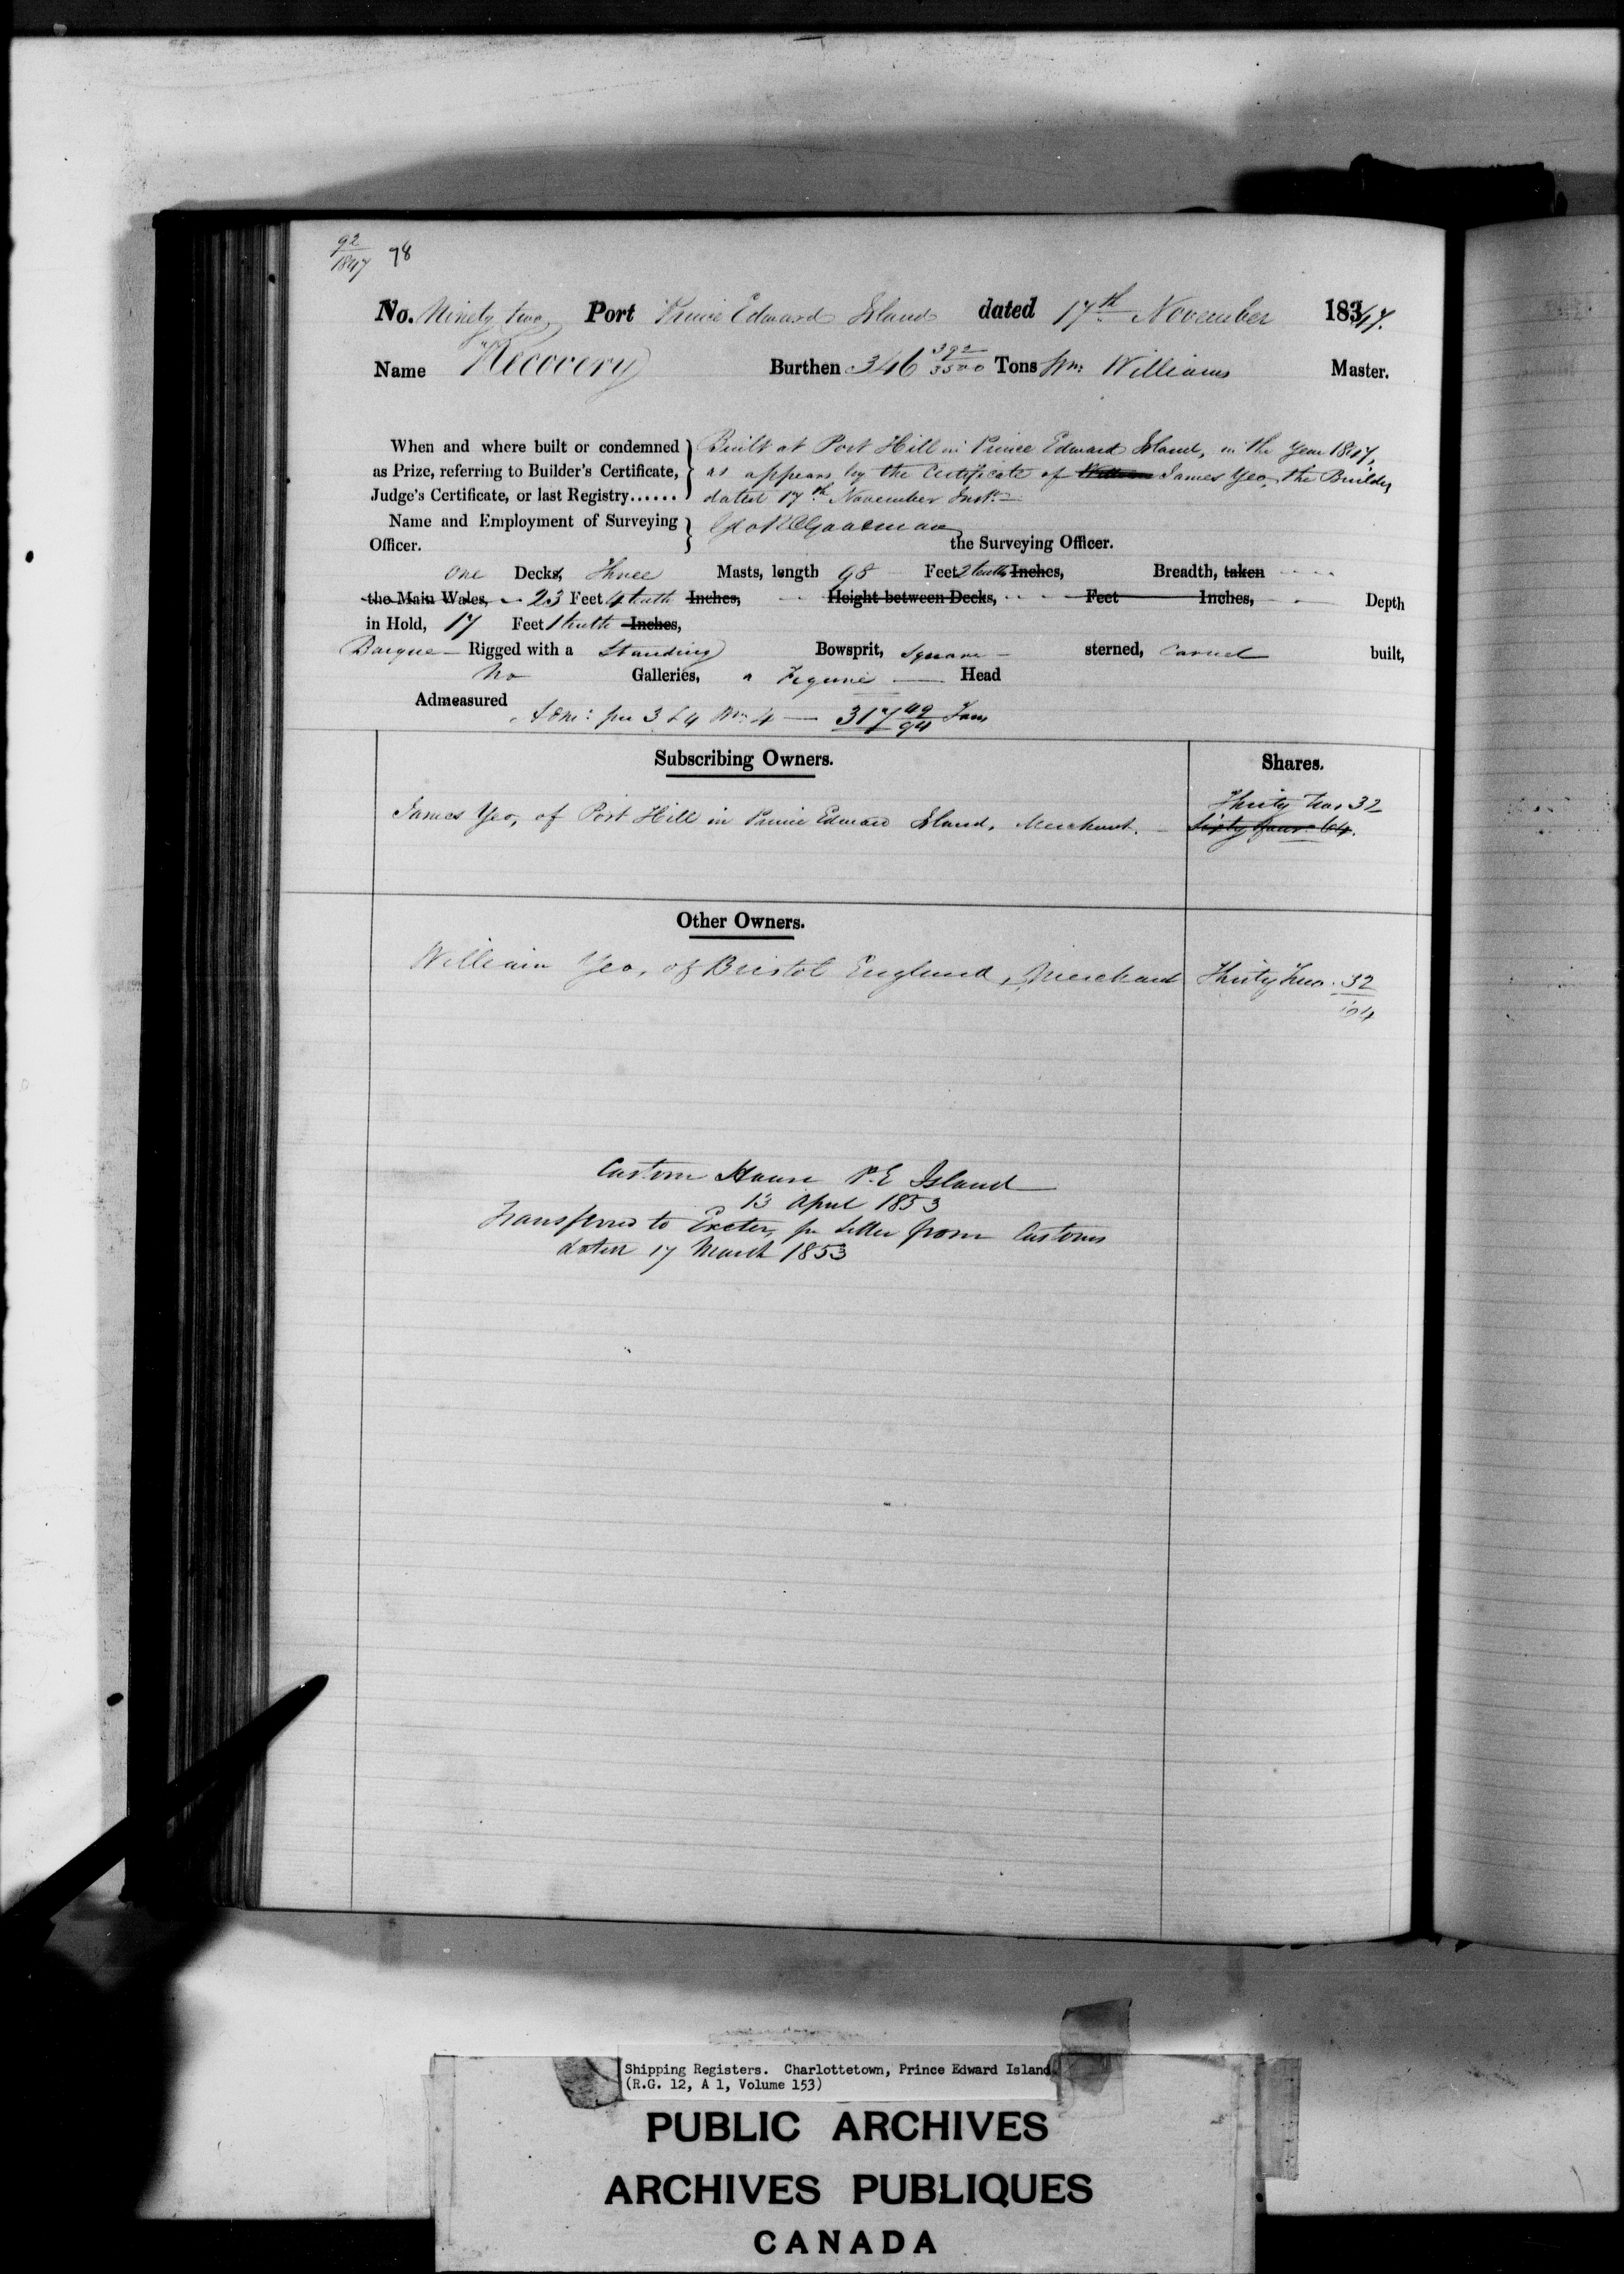 92
1847 78
No. Ninety two Port Prince Edward Island dated 17th November 1847.
Name "Recovery Burthen 346 392/3500 Tons Wm. Williams Master.
When and where built or condemned Built at Port Hill in Prince Edward Island, in the Year 1847,
as Prize, referring to Builder's Certificate, as appears by the Certificate of William James Yeo, the Builder,
Judge's Certificate, or last Registry...... dated 17th November Inst.
Name and Employment of Surveying
Officer. the Surveying Officer.
One Decks, Three Masts, length 98 Feet 2 tenths Inches, Breadth, taken
the Main Wales, 23 Feet 4 tenth Inches, Height between Decks, Feet Inches, Depth
in Hold, 17 Feet 1 tenth Inches,
Barque Rigged with a Standing Bowsprit, Square sterned, Carvel built,
No Galleries, a Figure Head
Admeasured
per 3 & 4 Wm. 4 — 317 49/94 Tons
Subscribing Owners. Shares.
Thirty two 32
James Yeo, of Port Hill in Prince Edward Island, Merchant. Sixty four 64.
Other Owners.
William Yeo, of Bristol England, Merchant Thirty two. 32
64
Custom House P.E Island
13 April 1853
Transferred to Exeter, pr Letter from Customs
dated 17 March 1853
Shipping Registers. Charlottetown, Prince Edward Island
(R.G. 12, A 1, Volume 153)
PUBLIC ARCHIVES
ARCHIVES PUBLIQUES
CANADA